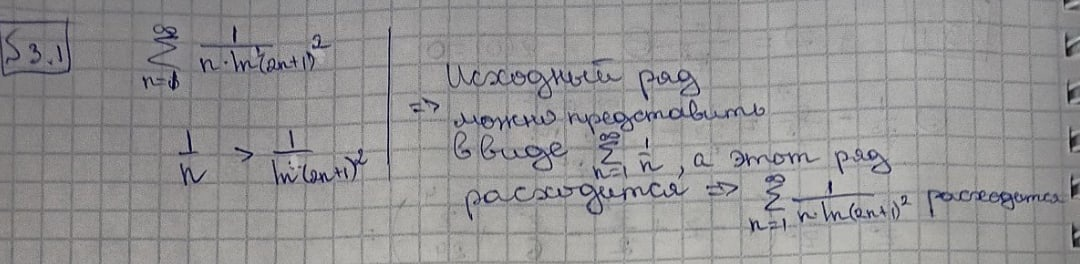 S 3.1
∞
∑ 1/(n·ln²(2n+1)²)
n=1
1/n > 1/(ln²(2n+1)²)
Исходный ряд
=> можно представить
в виде ∑_{n=1}^{∞} 1/n, а этот ряд
расходится => ∑_{n=1}^{∞} 1/(n·ln(2n+1)²) расходится